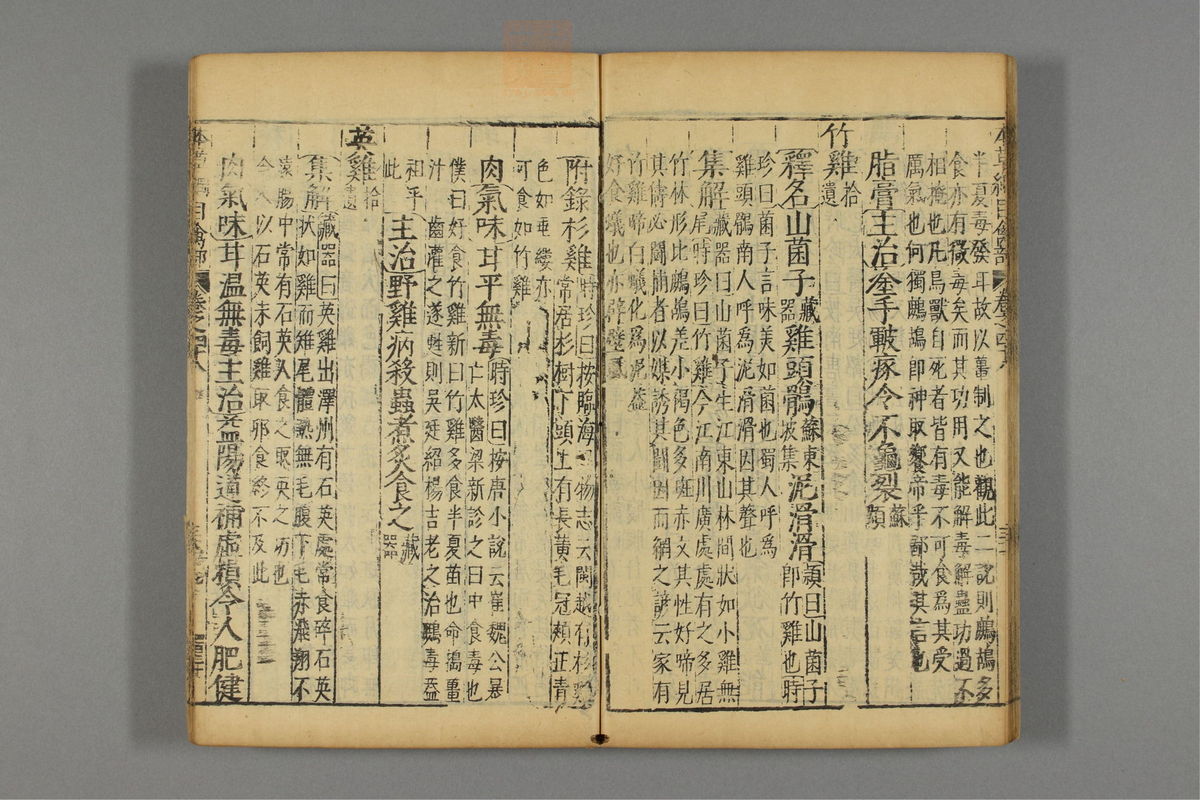 半夏毒發耳故以薑制之也觀此二說則鷓鴣多
食亦有微毒矣而其功用又能解毒解蠱功過不
相掩也凡鳥獸自死者皆有毒不可食為其受
厲氣也何獨鷓鴣即神取饗帝乎鄙哉其言也
脂膏主治塗手皸瘃令不龜裂蘇頌
竹雞拾遺
釋名山菌子藏器雞頭鶻蘇東坡集泥滑滑頴曰山菌子即竹雞也時
珍曰菌子言味美如菌也蜀人呼為
雞頭鶻南人呼為泥滑滑因其聲也
集解藏器曰山菌子生江東山林間狀如小雞無
尾時珍曰竹雞今江南川廣處處有之多居
竹林形比鷓鴣差小褐色多斑赤文其性好啼見
其儔必鬬捕者以媒誘其鬬因而網之諺云家有
竹雞啼白蟻化為泥蓋
好食蟻也亦辟壁虱
附錄杉雞時珍曰按臨海異物志云閩越有杉雞
常居杉樹下頭上有長黃毛冠頰正青
色如垂緌亦
可食如竹雞
肉氣味甘平無毒時珍曰按唐小說云崔魏公暴
亡太醫梁新診之曰中食毒也
僕曰好食竹雞新曰竹雞多食半夏苗也命擣薑
汁折齒灌之遂甦則吳廷紹楊吉老之治鷓毒蓋
祖乎
此
主治野雞病殺蟲煮炙食之藏器
英雞拾遺
集解藏器曰英雞出澤州有石英處常食碎石英
狀如雞而雉尾體熱無毛腹下毛赤飛翔不
遠腸中常有石英人食之取英之功也
今人以石英末飼雞取卵食終不及此
肉氣味甘温無毒主治益陽道補虛損令人肥健